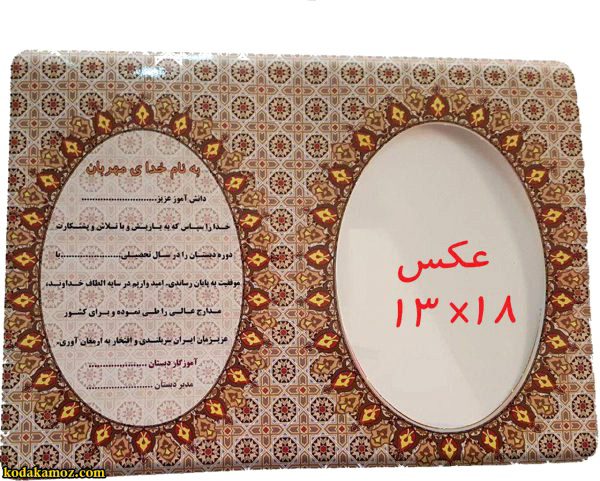 به نام خدا ی مهربان
دانش آموز عزیز............................
خدا را سپاس که به یاریش و با تلاش و پشتکارت
دوره دبستان را در سال تحصیلی......................با
موفقیت به پایان رساندی. امید واریم در سایه الطاف خداوند،
مدارج عالی را طی نموده و برای کشور
عزیزمان ایران سربلندی و افتخار به ارمغان آوری.
آموزگار دبستان ......................
مدیر دبستان ......................
عکس
۱۳×۱۸
kodakamoz.com